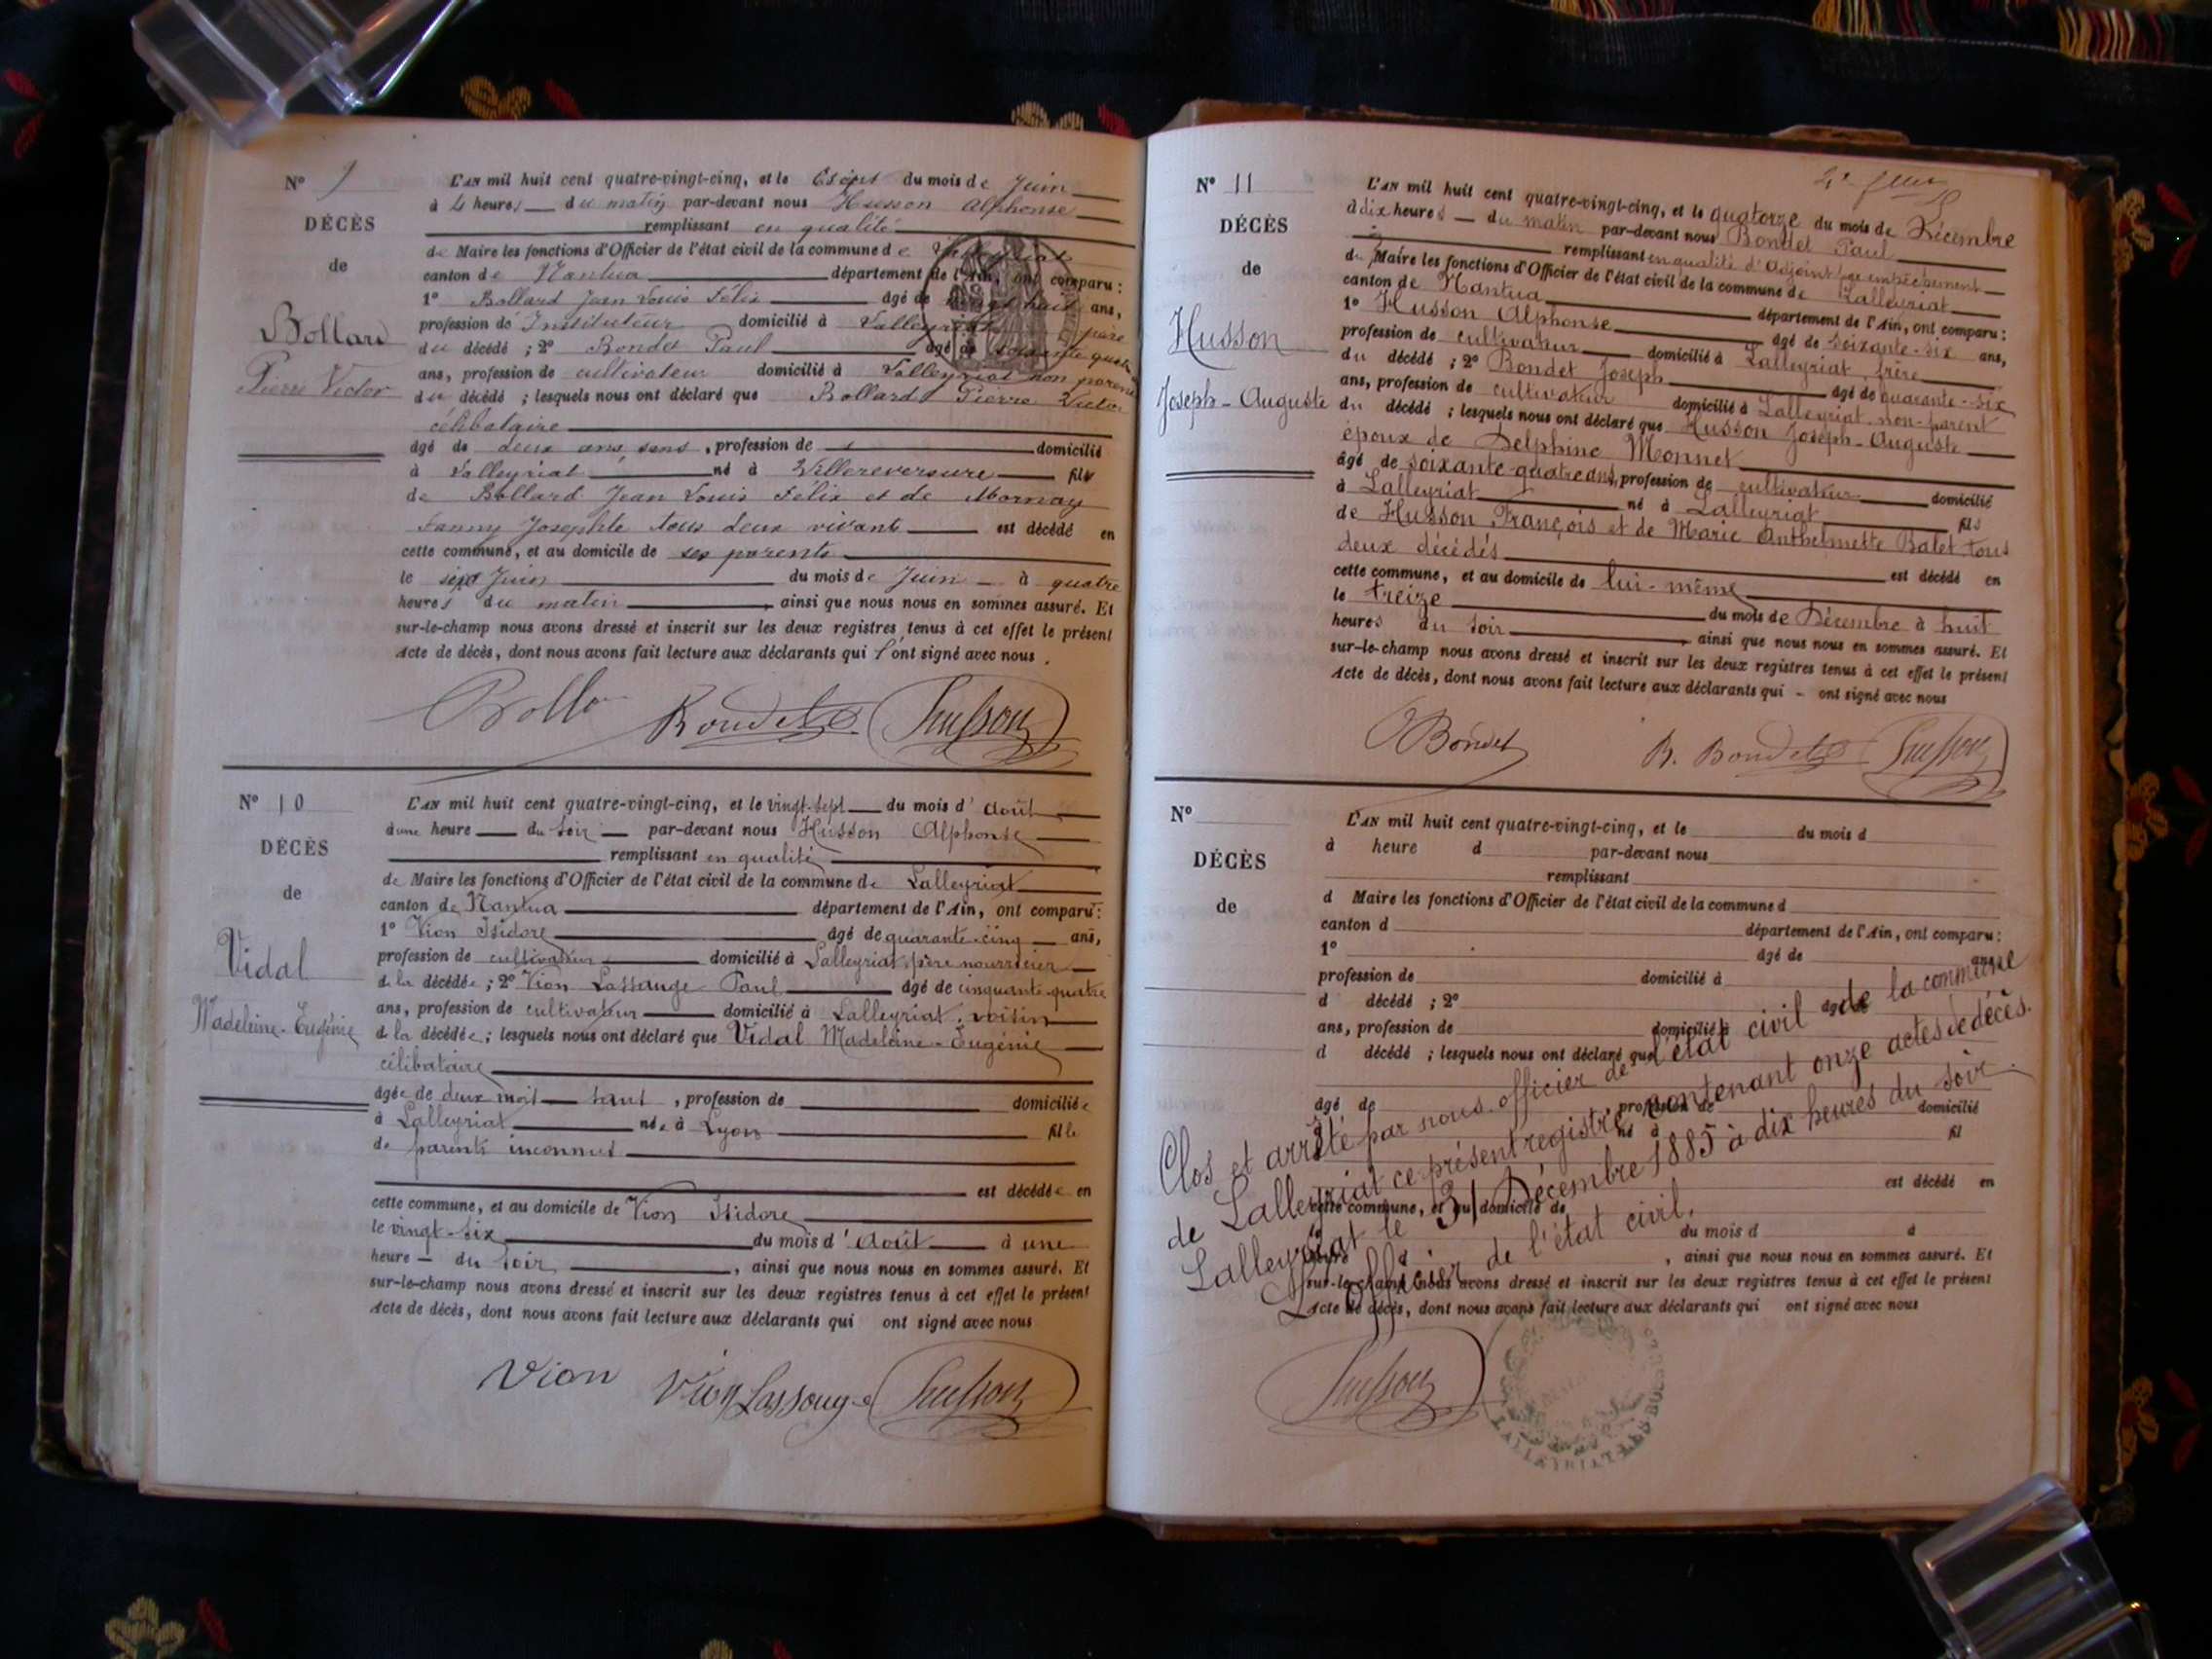 N° 9
DÉCÈS
de
Bollard
Pierre Victor
L'AN mil huit cent quatre-vingt-cinq, et le du mois de Juin
à 4 heures du matin par-devant nous Husson Alphonse
remplissant en qualité
de Maire les fonctions d'Officier de l'état civil de la commune de Lalleyriat
canton de Nantua département de l'Ain, ont comparu :
1° Bollard Jean Louis Félix âgé de huit ans,
profession de Instituteur domicilié à Lalleyriat père
du décédé ; 2° Bondet Paul âgé de soixante quatre
ans, profession de cultivateur domicilié à Lalleyriat non parent
du décédé ; lesquels nous ont déclaré que Bollard Pierre Victor
célibataire
âgé de deux ans, sans , profession de domicilié
à Lalleyriat né à Villereversure fils
de Bollard Jean Louis Félix et de Mornay
Fanny Josephte tous deux vivants est décédé en
cette commune, et au domicile de ses parents
le Juin du mois de Juin à quatre
heures du matin , ainsi que nous nous en sommes assuré. Et
sur-le-champ nous avons dressé et inscrit sur les deux registres tenus à cet effet le présent
Acte de décès, dont nous avons fait lecture aux déclarants qui l'ont signé avec nous .
Bondet Husson
N° 10
DÉCÈS
de
Vidal
Madeleine-Eugénie
L'AN mil huit cent quatre-vingt-cinq, et le vingt-sept du mois d'Août
à une heure du soir par-devant nous Husson Alphonse
remplissant en qualité
de Maire les fonctions d'Officier de l'état civil de la commune de Lalleyriat
canton de Nantua département de l'Ain, ont comparu :
1° Vion Isidore âgé de quarante-cinq ans,
profession de cultivateur domicilié à Lalleyriat, père nourricier
de la décédée ; 2° Vion Lassauge Paul âgé de cinquante-quatre
ans, profession de cultivateur domicilié à Lalleyriat, voisin
de la décédée ; lesquels nous ont déclaré que Vidal Madeleine-Eugénie
célibataire
âgée de deux mois sans , profession de domiciliée
à Lalleyriat née à Lyon fille
de parents inconnus
est décédée en
cette commune, et au domicile de Vion Isidore
le vingt-six du mois d'Août à une
heure du soir , ainsi que nous nous en sommes assuré. Et
sur-le-champ nous avons dressé et inscrit sur les deux registres tenus à cet effet le présent
Acte de décès, dont nous avons fait lecture aux déclarants qui ont signé avec nous
Vion Vion Lassouge Husson
N° 11
DÉCÈS
de
Husson
Joseph-Auguste
L'AN mil huit cent quatre-vingt-cinq, et le quatorze du mois de Décembre
à dix heures du matin par-devant nous Bondet Paul
remplissant en qualité d'Adjoint par empêchement
du Maire les fonctions d'Officier de l'état civil de la commune de Lalleyriat
canton de Nantua département de l'Ain, ont comparu :
1° Husson Alphonse âgé de soixante-six ans,
profession de cultivateur domicilié à Lalleyriat, frère
du décédé ; 2° Bondet Joseph âgé de quarante-six
ans, profession de cultivateur domicilié à Lalleyriat non-parent
du décédé ; lesquels nous ont déclaré que Husson Joseph-Auguste
époux de Delphine Monnet
âgé de soixante-quatre ans, profession de cultivateur domicilié
à Lalleyriat né à Lalleyriat fils
de Husson François et de Marie Anthelmette Balet tous
deux décédés est décédé en
cette commune, et au domicile de lui-même
le treize du mois de Décembre à huit
heures du soir , ainsi que nous nous en sommes assuré. Et
sur-le-champ nous avons dressé et inscrit sur les deux registres tenus à cet effet le présent
Acte de décès, dont nous avons fait lecture aux déclarants qui - ont signé avec nous
Bondet Bondet Husson
N°
DÉCÈS
de
L'AN mil huit cent quatre-vingt-cinq, et le du mois d
à heure d par-devant nous
remplissant
d Maire les fonctions d'Officier de l'état civil de la commune d
canton d département de l'Ain, ont comparu :
1° âgé de ans,
profession de domicilié à
d décédé ; 2° âgé de
ans, profession de domicilié à
d décédé ; lesquels nous ont déclaré que
âgé de , profession de domicilié
à né à fil
est décédé en
cette commune, et au domicile de
le du mois d à
heure d , ainsi que nous nous en sommes assuré. Et
sur-le-champ nous avons dressé et inscrit sur les deux registres tenus à cet effet le présent
Acte de décès, dont nous avons fait lecture aux déclarants qui ont signé avec nous
Clos et arrêté par nous officier de l'état civil de la commune
de Lalleyriat ce présent registre contenant onze actes de décès.
Lalleyriat le 31 Décembre 1885 à dix heures du soir.
L'officier de l'état civil.
Husson